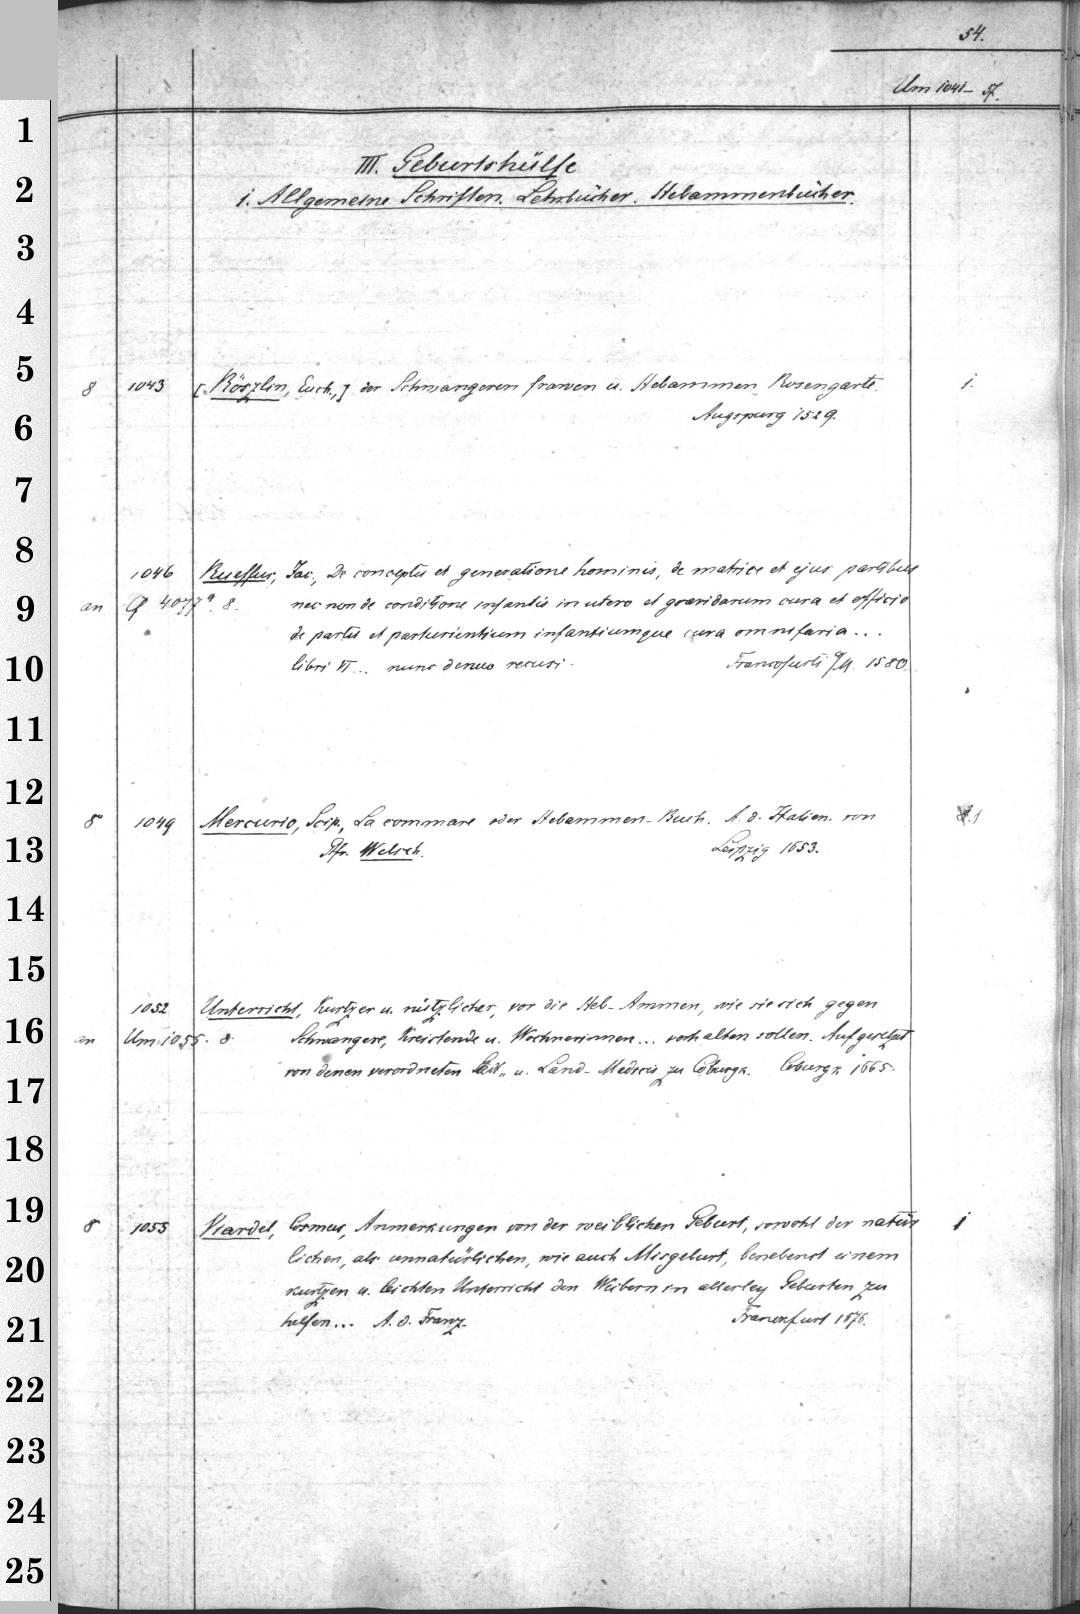 54.
Um 1041- 57.
III. Geburtshülfe
1. Allgemeine Schriften. Lehrbücher. Hebammenbücher.
8 1043 [Röszlin, Euch.,] der Schwangeren frawen u. Hebammen Rosengarte. 1.
Augspurg 1529.
1046 Rueffus, Jac., De conceptu et generatione hominis, de matrice et ejus partibus
an Q 4077a. 8. nec non de conditione infantis in utero et gravidarum cura et officio
de partu et parturientium infantiumque cura omnifaria ...
libri VI ... nunc denuo recusi. Francofurti a/M. 1580.
8 1049 Mercurio, Scip., La commare oder Hebammen-Buch. A. d. Italien. von 1
Gfr. Welsch. Leipzig 1653.
1052 Unterricht, Kurtzer u. nützlicher, vor die Heb-Ammen, wie sie sich gegen
an Um 1055. 8. Schwangere, Kreistende u. Wochnerinnen ... verhalten sollen. Aufgesetzt
von denen verordneten u. Land-Medicis zu Coburgk. Coburgk 1665.
8 1055 Viardel, Cosmus, Anmerkungen von der weiblichen Geburt, sowohl der natür 1
lichen, als unnatürlichen, wie auch Misgeburt, benebenst einem
kurtzen u. leichten Unterricht den Weibern in allerley Geburten zu
helfen ... A. d. Franz. Franckfurt 1676.
1
2
3
4
5
6
7
8
9
10
11
12
13
14
15
16
17
18
19
20
21
22
23
24
25